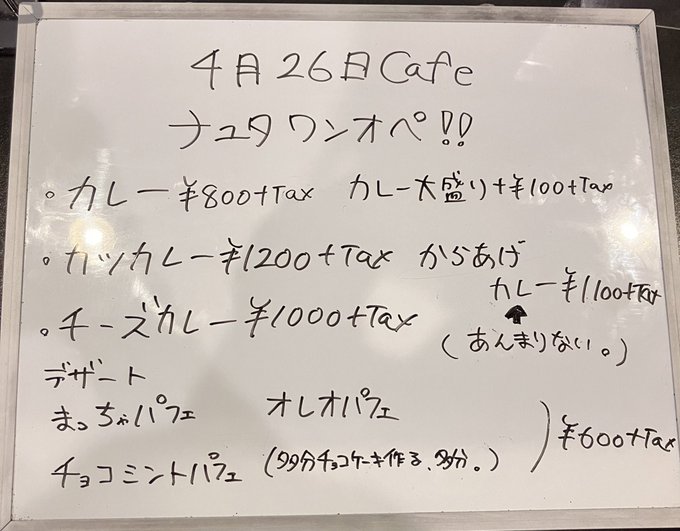 4月26日Cafe
ナユタワンオペ!!
。カレー¥800+Tax カレー大盛り+¥100+Tax
。カツカレー¥1200+Tax からあげ
カレー¥1100+Tax
。チーズカレー¥1000+Tax
↑
(あんまりない。)
デザート
まっちゃパフェ オレオパフェ
)¥600+Tax
チョコミントパフェ (多分チョコケーキ作る、多分。)